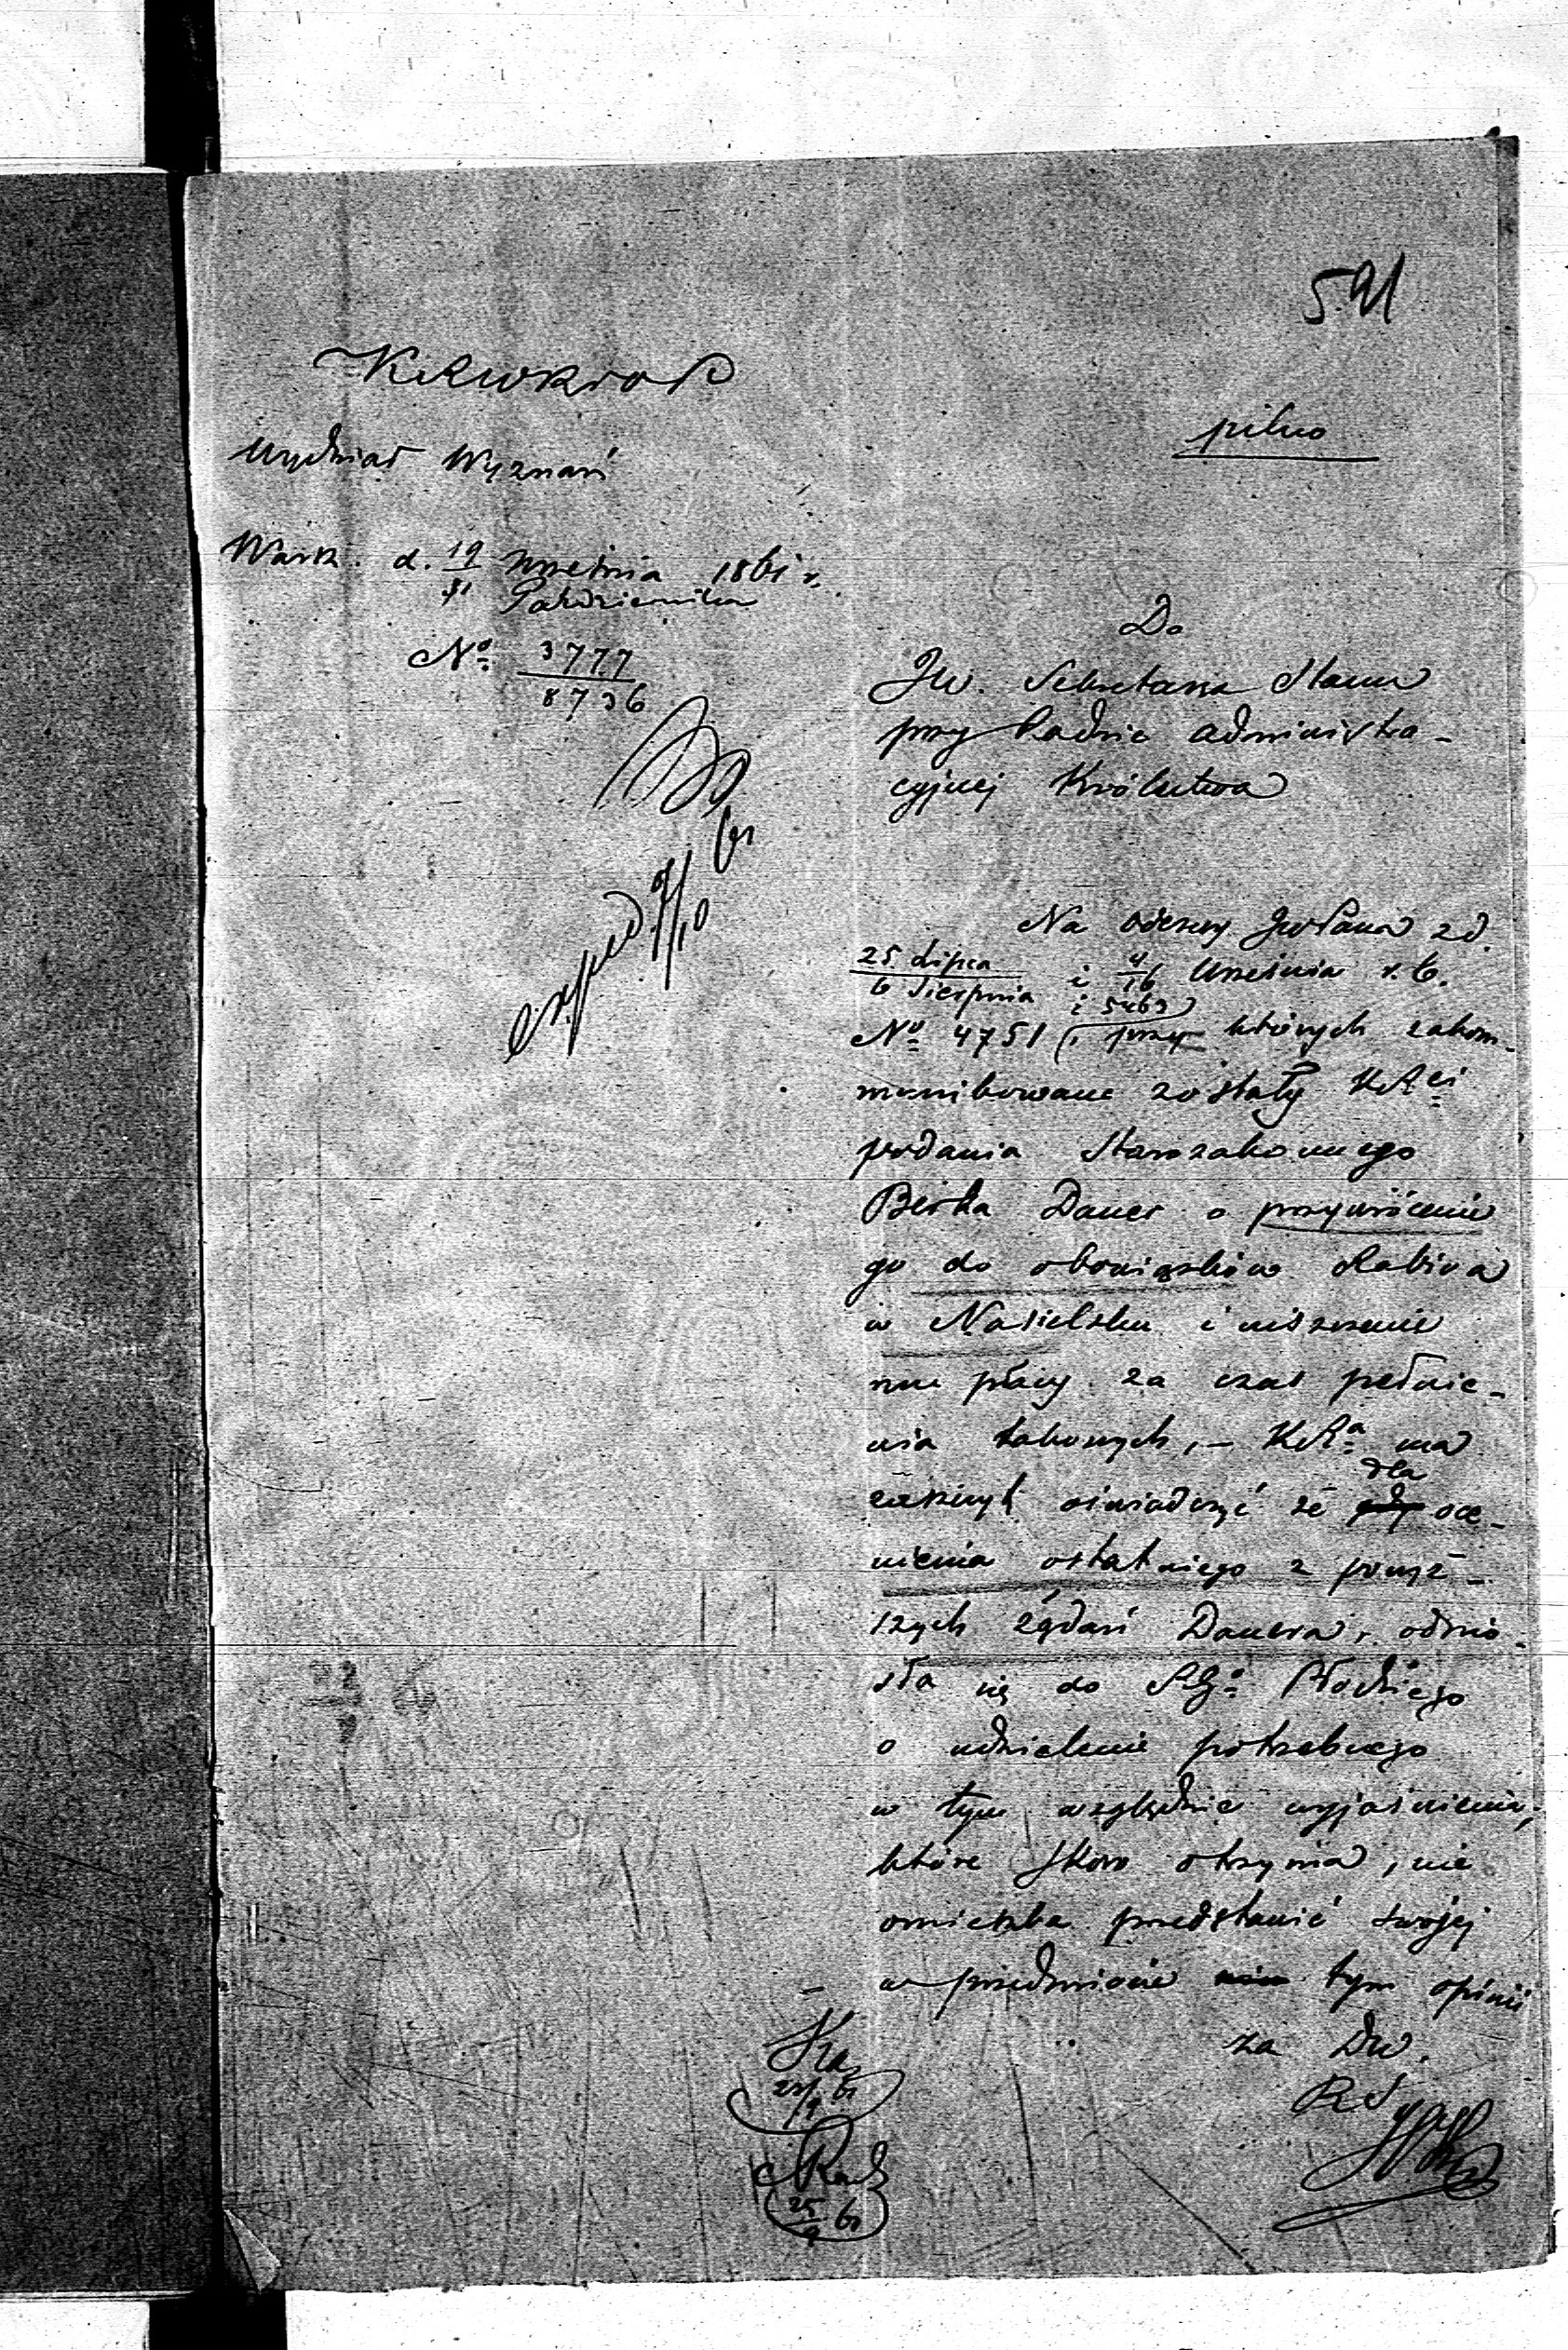 591
pilno
Wydział Wyznań
Warsz. d. 19 Września 1861 r.
Października
No 3777
8736
exped. 61
Do
JW. Sekretarza Stanu
przy Radzie Administra-
cyjnej Królestwa
Na odezwy JW Pana z d.
25 Lipca i 4/16 Września r. b.
6 Sierpnia i 5463
No 4751, przy których zakom-
munikowane zostały KRei
podania Starozakonnego
Berka Dauer o przywrócenie
go do obowiązków Rabina
w Nasielsku i uiszczenie
mu płacy za czas pełnie-
nia takowych, – KRa ma
dla
zaszczyt oświadczyć że oce-
nienia ostatniego z powyż-
szych żądań Dauera, odnio-
sła się do RGo Płockiego
o udzielenie potrzebnego
w tym względzie wyjaśnienia,
które skoro otrzyma, nie
omieszka przedstawić swojej
w przedmiocie tym opinii
za Dw.
25/9 61